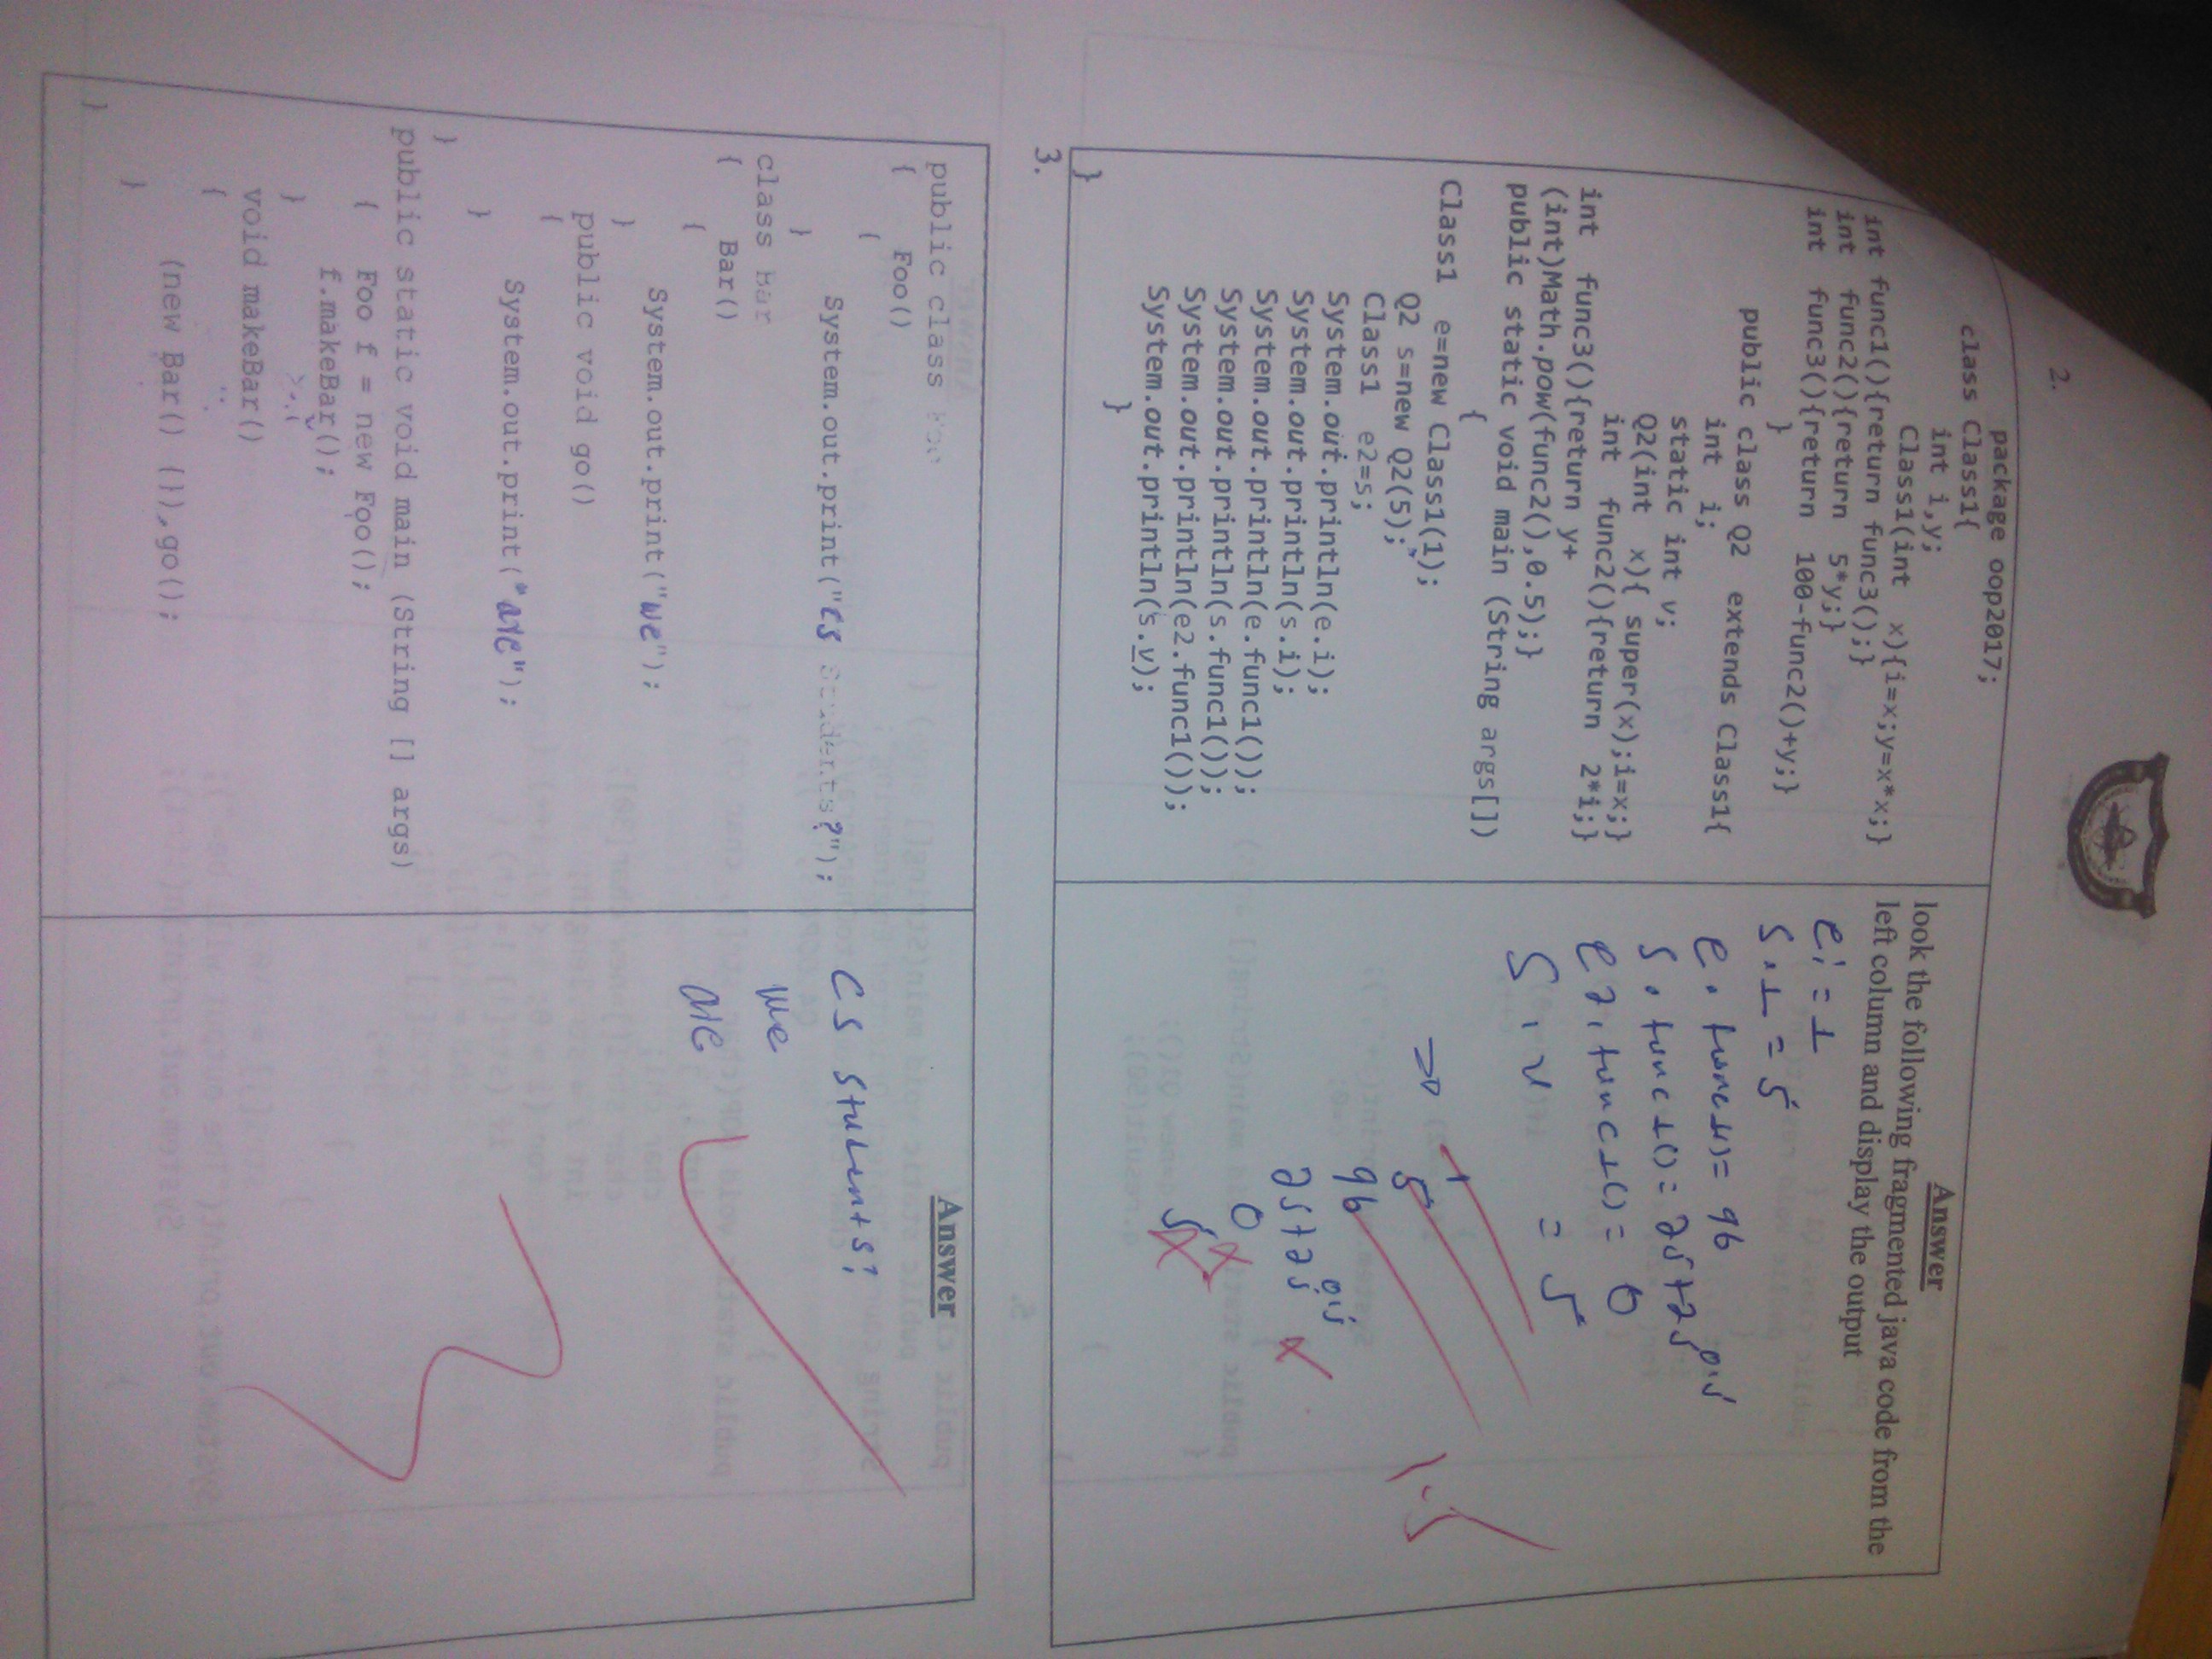 2.
package oop2017;
class Class1{
int i,y;
Class1(int x){i=x;y=x*x;}
int func1(){return func3();}
int func2(){return 5*y;}
int func3(){return 100-func2()+y;}
}
public class Q2 extends Class1{
int i;
static int v;
Q2(int x){ super(x);i=x;}
int func2(){return 2*i;}
int func3(){return y+
(int)Math.pow(func2(),0.5);}
public static void main (String args[])
{
Class1 e=new Class1(1);
Q2 s=new Q2(5);
Class1 e2=s;
System.out.println(e.i);
System.out.println(s.i);
System.out.println(e.func1());
System.out.println(s.func1());
System.out.println(e2.func1());
System.out.println(s.v);
}
}
Answer
look the following fragmented java code from the
left column and display the output
ei = 1
s.1 = 5
e. func1()= 96
s. func1()= 25+25 0.5
e2. func1()= 0
S. v = 5
=> 1
5
96
25+25 0.5
0
5
1.5
3.
public class Foo
{ Foo()
{
System.out.print("CS Students?");
}
class Bar
{ Bar()
{
System.out.print("we");
}
public void go()
{
System.out.print("are");
}
}
public static void main (String [] args)
{ Foo f = new Foo();
f.makeBar();
}
void makeBar()
{
(new Bar() {}).go();
}
}
Answer
CS Students?
we
are